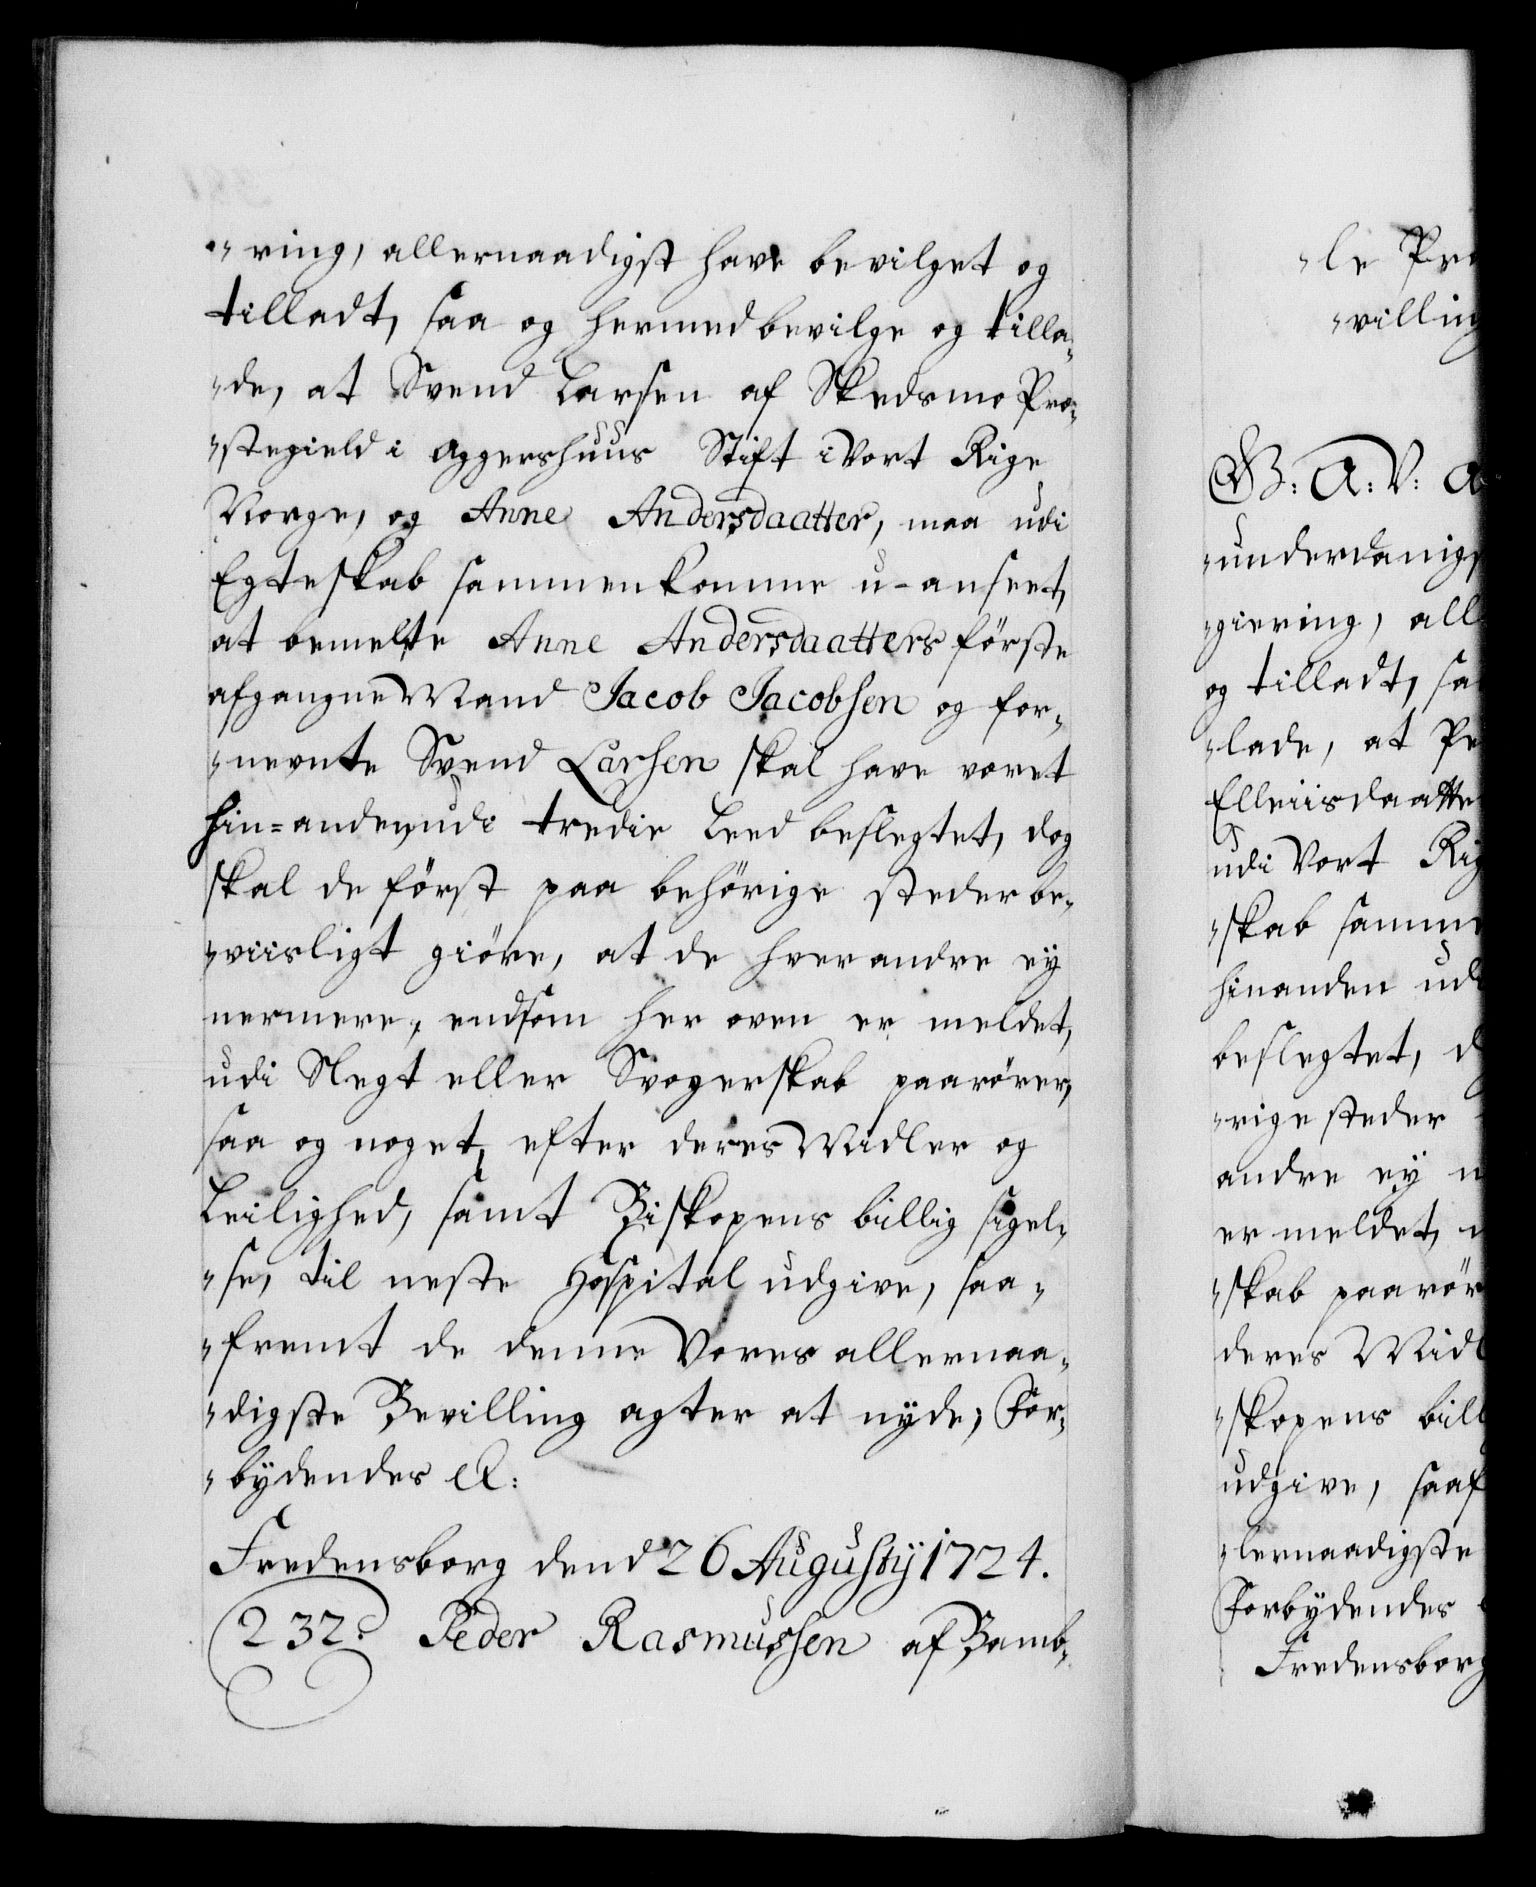 "ring, allernaadigst have bevilget og
tilladt, saa og hermed bevilge og tilla„
„de, at Svend Larsen af Skedsmo Præ„
„stegield i Aggershuus Stift i Vort Rige
Norge, og Anne Andersdaatter, maa udi
Egteskab sammenkomme u-anseet,
at bemelte Anne Andersdaatters förste
afgangne Mand Jacob Jacobsen og for„
„nevnte Svend Larsen skal have været
hin=anden udi tredie Leed beslegtet, dog
skal de först paa behörige steder be„
„viisligt giöre, at de hverandre ey
nermere, end som her oven er meldet,
udi Slegt eller Svogerskab paarörer,
saa og noget, efter deres Midler og
Leilighed, samt Biskopens billig sigel„
„se, til neste Hospital udgive, saa„
„fremt de denne Vores allernaa„
„digste Bevilling agter at nyde; For„
„bydendes &:
Fredensborg dend 26 Augusty 1724.
232. Peder Rasmussen af Bamb„
„le Præ
„villing
G: A: V: A
„underdanigs
„giering, all
og tilladt, sa
„lade, at Pe
Elleiisdaatte
udi Vort Rig
„skab samme
hinanden udi
beslegtet, d
„rige steder
andre ey n
er meldet, u
„skab paarör
deres Midl
„skopens bill
udgive, saaf
„lernaadigste
Forbydendes
Fredensborg